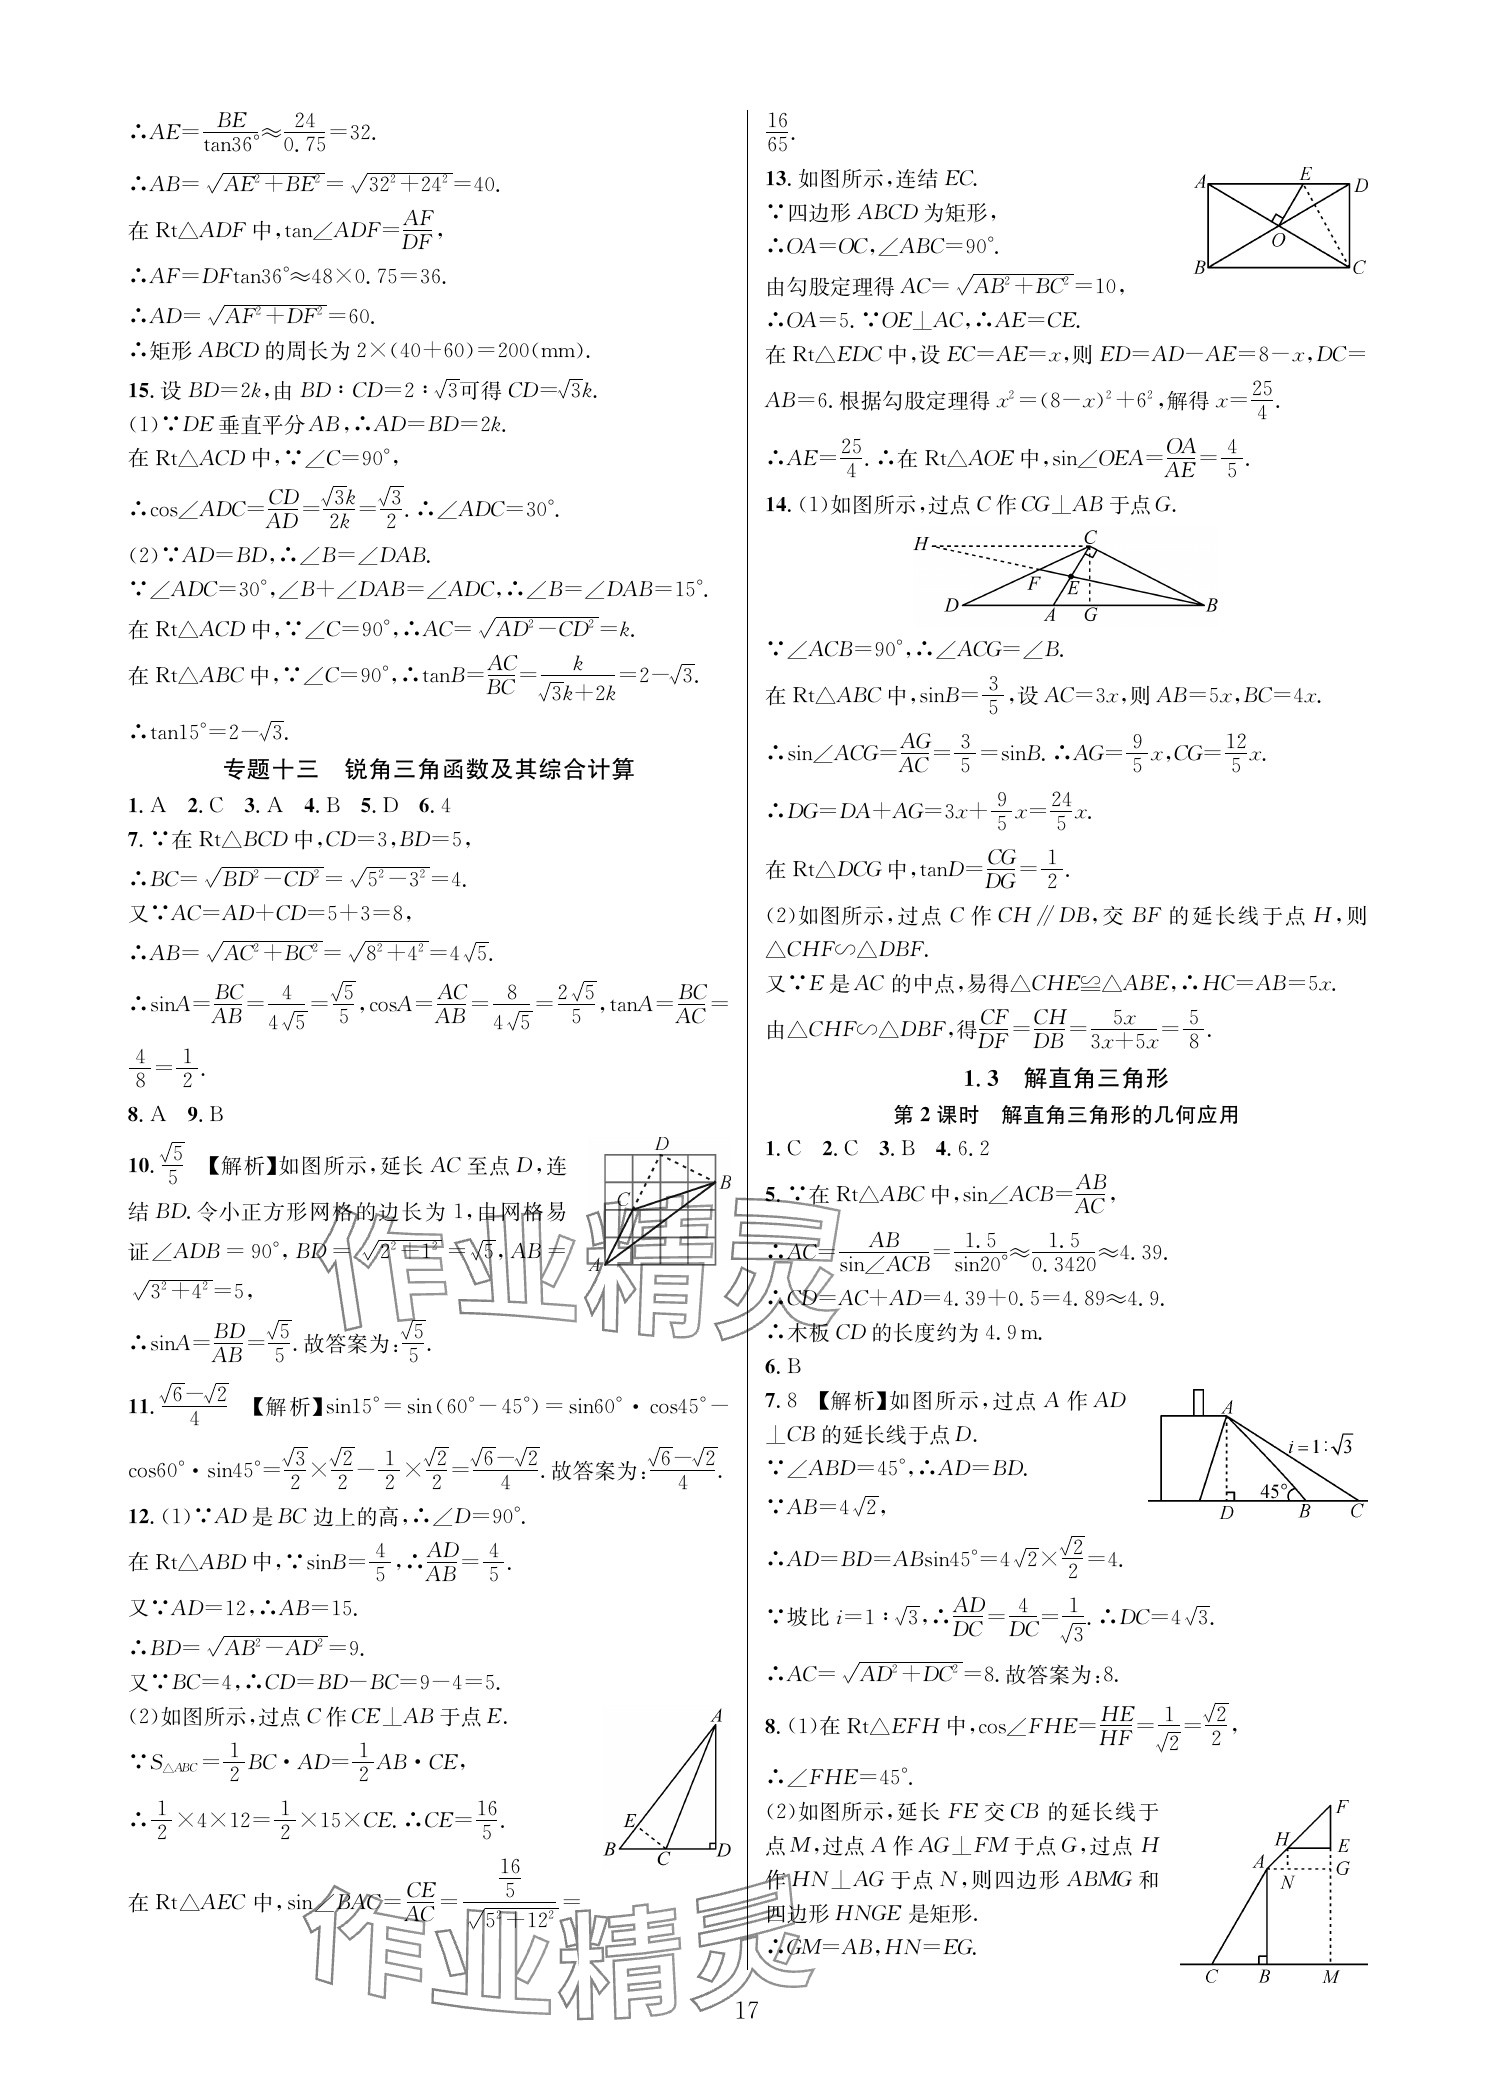 ∴AE=BE/tan36°≈24/0.75=32.
∴AB=√(AE²+BE²)=√(32²+24²)=40.
在 Rt△ADF 中,tan∠ADF=AF/DF,
∴AF=DFtan36°≈48×0.75=36.
∴AD=√(AF²+DF²)=60.
∴矩形 ABCD 的周长为 2×(40+60)=200(mm).
15. 设 BD=2k,由 BD∶CD=2∶√3可得 CD=√3k.
(1)∵DE 垂直平分 AB,∴AD=BD=2k.
在 Rt△ACD 中,∵∠C=90°,
∴cos∠ADC=CD/AD=√3k/2k=√3/2. ∴∠ADC=30°.
(2)∵AD=BD,∴∠B=∠DAB.
∵∠ADC=30°,∠B+∠DAB=∠ADC,∴∠B=∠DAB=15°.
在 Rt△ACD 中,∵∠C=90°,∴AC=√(AD²-CD²)=k.
在 Rt△ABC 中,∵∠C=90°,∴tanB=AC/BC=k/(√3k+2k)=2-√3.
∴tan15°=2-√3.
专题十三 锐角三角函数及其综合计算
1. A 2. C 3. A 4. B 5. D 6. 4
7. ∵在 Rt△BCD 中,CD=3,BD=5,
∴BC=√(BD²-CD²)=√(5²-3²)=4.
又∵AC=AD+CD=5+3=8,
∴AB=√(AC²+BC²)=√(8²+4²)=4√5.
∴sinA=BC/AB=4/4√5=√5/5,cosA=AC/AB=8/4√5=2√5/5,tanA=BC/AC=
4/8=1/2.
8. A 9. B
10. √5/5 【解析】如图所示,延长 AC 至点 D,连
结 BD. 令小正方形网格的边长为 1,由网格易
证∠ADB=90°,BD=√(2²+1²)=√5,AB=
√(3²+4²)=5,
∴sinA=BD/AB=√5/5. 故答案为:√5/5.
D
B
C
A
11. (√6-√2)/4 【解析】sin15°=sin(60°-45°)=sin60°·cos45°-
cos60°·sin45°=√3/2×√2/2-1/2×√2/2=(√6-√2)/4. 故答案为:(√6-√2)/4.
12. (1)∵AD 是 BC 边上的高,∴∠D=90°.
在 Rt△ABD 中,∵sinB=4/5,∴AD/AB=4/5.
又∵AD=12,∴AB=15.
∴BD=√(AB²-AD²)=9.
又∵BC=4,∴CD=BD-BC=9-4=5.
(2)如图所示,过点 C 作 CE⊥AB 于点 E.
∵S△ABC=1/2BC·AD=1/2AB·CE,
∴1/2×4×12=1/2×15×CE. ∴CE=16/5.
在 Rt△AEC 中,sin∠BAC=CE/AC=(16/5)/√(5²+12²)=
A
E
B C D
16/65.
13. 如图所示,连结 EC.
∵四边形 ABCD 为矩形,
∴OA=OC,∠ABC=90°.
由勾股定理得 AC=√(AB²+BC²)=10,
∴OA=5. ∵OE⊥AC,∴AE=CE.
A E D
O
B C
在 Rt△EDC 中,设 EC=AE=x,则 ED=AD-AE=8-x,DC=
AB=6. 根据勾股定理得 x²=(8-x)²+6²,解得 x=25/4.
∴AE=25/4. ∴在 Rt△AOE 中,sin∠OEA=OA/AE=4/5.
14. (1)如图所示,过点 C 作 CG⊥AB 于点 G.
H C
F E
D A G B
∵∠ACB=90°,∴∠ACG=∠B.
在 Rt△ABC 中,sinB=3/5,设 AC=3x,则 AB=5x,BC=4x.
∴sin∠ACG=AG/AC=3/5=sinB. ∴AG=9/5x,CG=12/5x.
∴DG=DA+AG=3x+9/5x=24/5x.
在 Rt△DCG 中,tanD=CG/DG=1/2.
(2)如图所示,过点 C 作 CH∥DB,交 BF 的延长线于点 H,则
△CHF∽△DBF.
又∵E 是 AC 的中点,易得△CHE≌△ABE,∴HC=AB=5x.
由△CHF∽△DBF,得CF/DF=CH/DB=5x/(3x+5x)=5/8.
1.3 解直角三角形
第 2 课时 解直角三角形的几何应用
1. C 2. C 3. B 4. 6.2
5. ∵在 Rt△ABC 中,sin∠ACB=AB/AC,
∴AC=AB/sin∠ACB=1.5/sin20°≈1.5/0.3420≈4.39.
∴CD=AC+AD=4.39+0.5=4.89≈4.9.
∴木板 CD 的长度约为 4.9 m.
6. B
7. 8 【解析】如图所示,过点 A 作 AD
⊥CB 的延长线于点 D.
∵∠ABD=45°,∴AD=BD.
∵AB=4√2,
A
i=1∶√3
45°
D B C
∴AD=BD=ABsin45°=4√2×√2/2=4.
∵坡比 i=1∶√3,∴AD/DC=4/DC=1/√3. ∴DC=4√3.
∴AC=√(AD²+DC²)=8. 故答案为:8.
8. (1)在 Rt△EFH 中,cos∠FHE=HE/HF=1/√2=√2/2,
∴∠FHE=45°.
(2)如图所示,延长 FE 交 CB 的延长线于
点 M,过点 A 作 AG⊥FM 于点 G,过点 H
作 HN⊥AG 于点 N,则四边形 ABMG 和
四边形 HNGE 是矩形.
∴GM=AB,HN=EG.
F
H E
A G
N
C B M
作业精灵
作业精灵
17